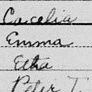 Caecelia
Emma
Etha
Peter T.